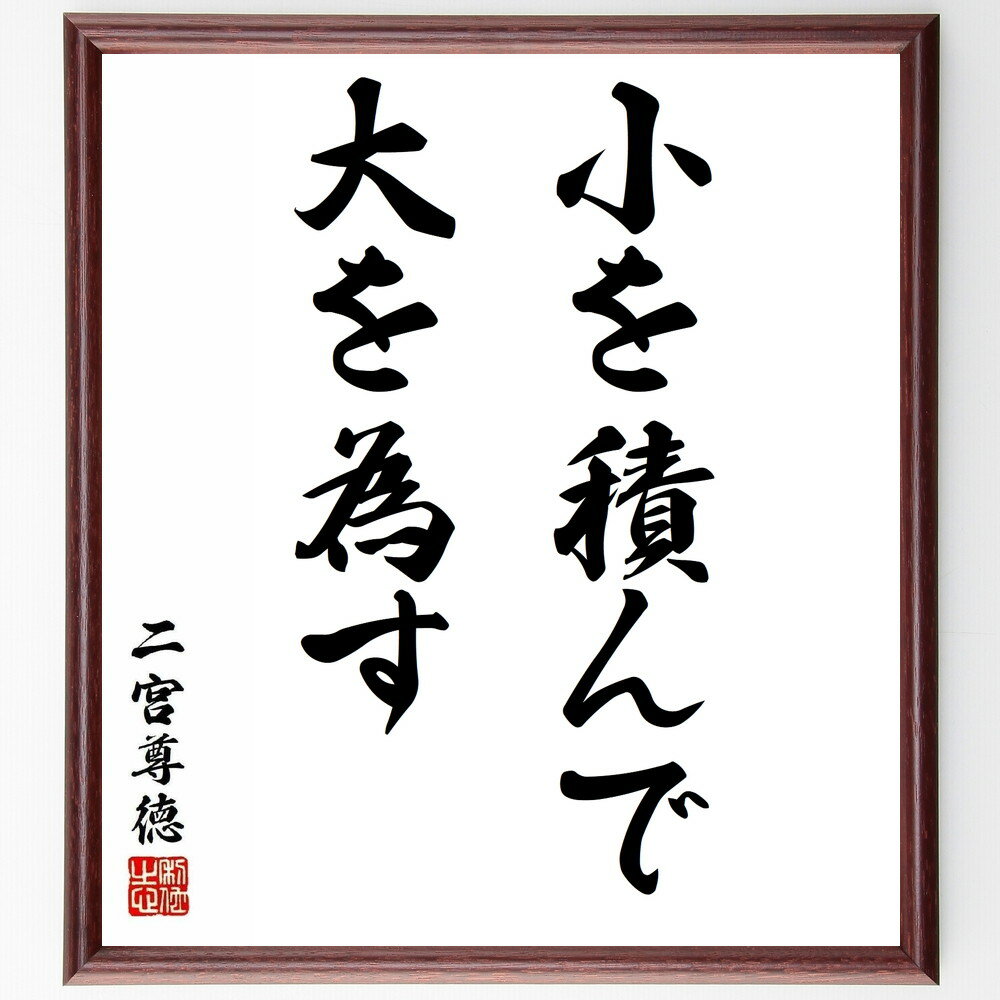 小を積んで
大を為す
二宮尊徳